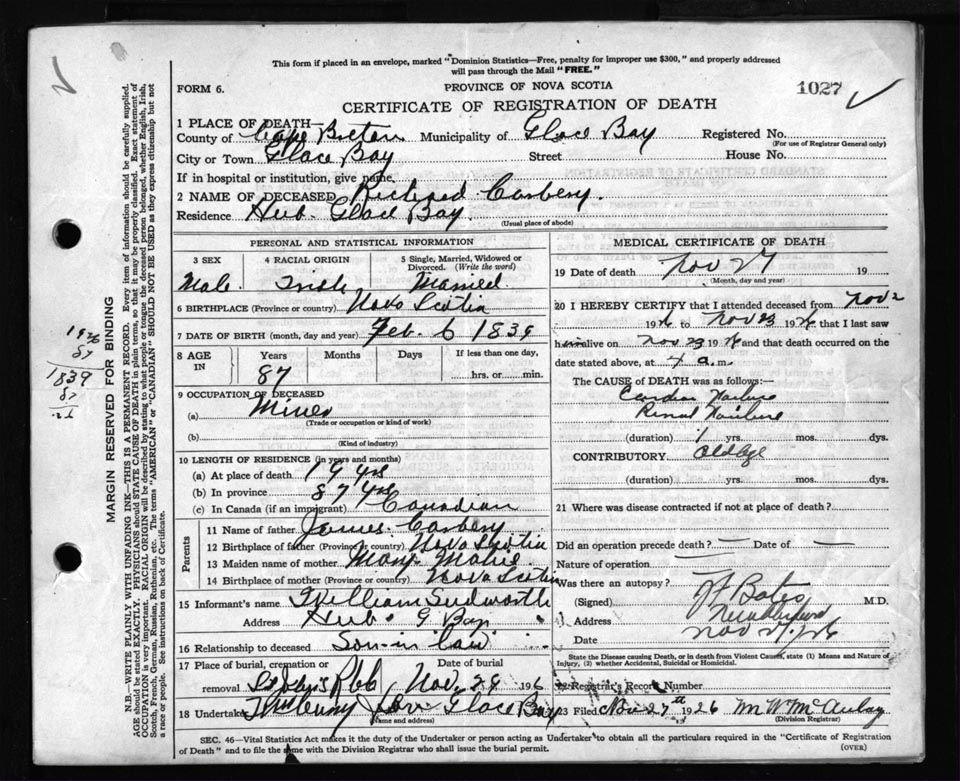 This form if placed in an envelope, marked "Dominion Statistics—Free, penalty for improper use $300," and properly addressed
will pass through the Mail "FREE."
FORM 6.
PROVINCE OF NOVA SCOTIA
1027
CERTIFICATE OF REGISTRATION OF DEATH
1 PLACE OF DEATH—
County of Cape Breton Municipality of Glace Bay Registered No.
(For use of Registrar General only)
City or Town Glace Bay Street House No.
If in hospital or institution, give name
2 NAME OF DECEASED Richard Carbery.
Residence Hub. Glace Bay.
(Usual place of abode)
PERSONAL AND STATISTICAL INFORMATION
3 SEX 4 RACIAL ORIGIN 5 Single, Married, Widowed or Divorced. (Write the word)
Male Irish Married
6 BIRTHPLACE (Province or country) Nova Scotia
7 DATE OF BIRTH (month, day and year) Feb. 6 1839
8 AGE IN Years Months Days If less than one day,
87 hrs. or min.
9 OCCUPATION OF DECEASED
(a) Miner
(Trade or occupation or kind of work)
(b)
(Kind of industry)
10 LENGTH OF RESIDENCE (in years and months)
(a) At place of death 19 yrs
(b) In province 87 yrs
(c) In Canada (if an immigrant) Canadian
Parents
11 Name of father James Carbery
12 Birthplace of father (Province or country) Nova Scotia
13 Maiden name of mother Mary
14 Birthplace of mother (Province or country) Nova Scotia
15 Informant's name William Sudworth
Address Hub G Bay
16 Relationship to deceased Son-in law
17 Place of burial, cremation or removal Date of burial
Nov. 29 1926
18 Undertaker Glace Bay
(Name and address)
MEDICAL CERTIFICATE OF DEATH
19 Date of death Nov 27 19
(Month, day and year)
20 I HEREBY CERTIFY that I attended deceased from Nov 2
1926 to Nov 23 1926 that I last saw
him alive on Nov 23 1926 and that death occurred on the
date stated above, at 4 a.m.
The CAUSE OF DEATH was as follows:
Cardiac Failure
Renal Failure
(duration) 1 yrs. mos. dys.
CONTRIBUTORY Old Age
(duration) yrs. mos. dys.
21 Where was disease contracted if not at place of death?
Did an operation precede death? — Date of —
Nature of operation
Was there an autopsy?
(Signed) Bates M.D.
Address
Date Nov 27/26
State the Disease causing Death, or in death from Violent Causes, state (1) Means and Nature of
Injury, (2) whether Accidental, Suicidal or Homicidal.
22 Registrar's Record Number
23 Filed Nov 27th 1926 M W McAulay
(Division Registrar)
SEC. 46—Vital Statistics Act makes it the duty of the Undertaker or person acting as Undertaker to obtain all the particulars required in the "Certificate of Registration
of Death" and to file the same with the Division Registrar who shall issue the burial permit.
(OVER)
MARGIN RESERVED FOR BINDING
N.B.—WRITE PLAINLY WITH UNFADING INK—THIS IS A PERMANENT RECORD. Every item of information should be carefully supplied.
AGE should be stated EXACTLY. PHYSICIANS should STATE CAUSE OF DEATH in plain terms, so that it may be properly classified. Exact statement of
OCCUPATION is very important. RACIAL ORIGIN will be described by stating to what people or tongue the deceased person belonged, whether English, Irish,
Scotch, French, German, Russian, Ruthenian, etc. The terms "AMERICAN" or "CANADIAN" SHOULD NOT BE USED as they express citizenship but not
a race or people. See instructions on back of Certificate.
1926
87
1839
87